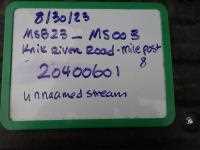 8/30/23
MSB23 - MS003
Knik River Road - mile post
8
20400601
unnamed stream